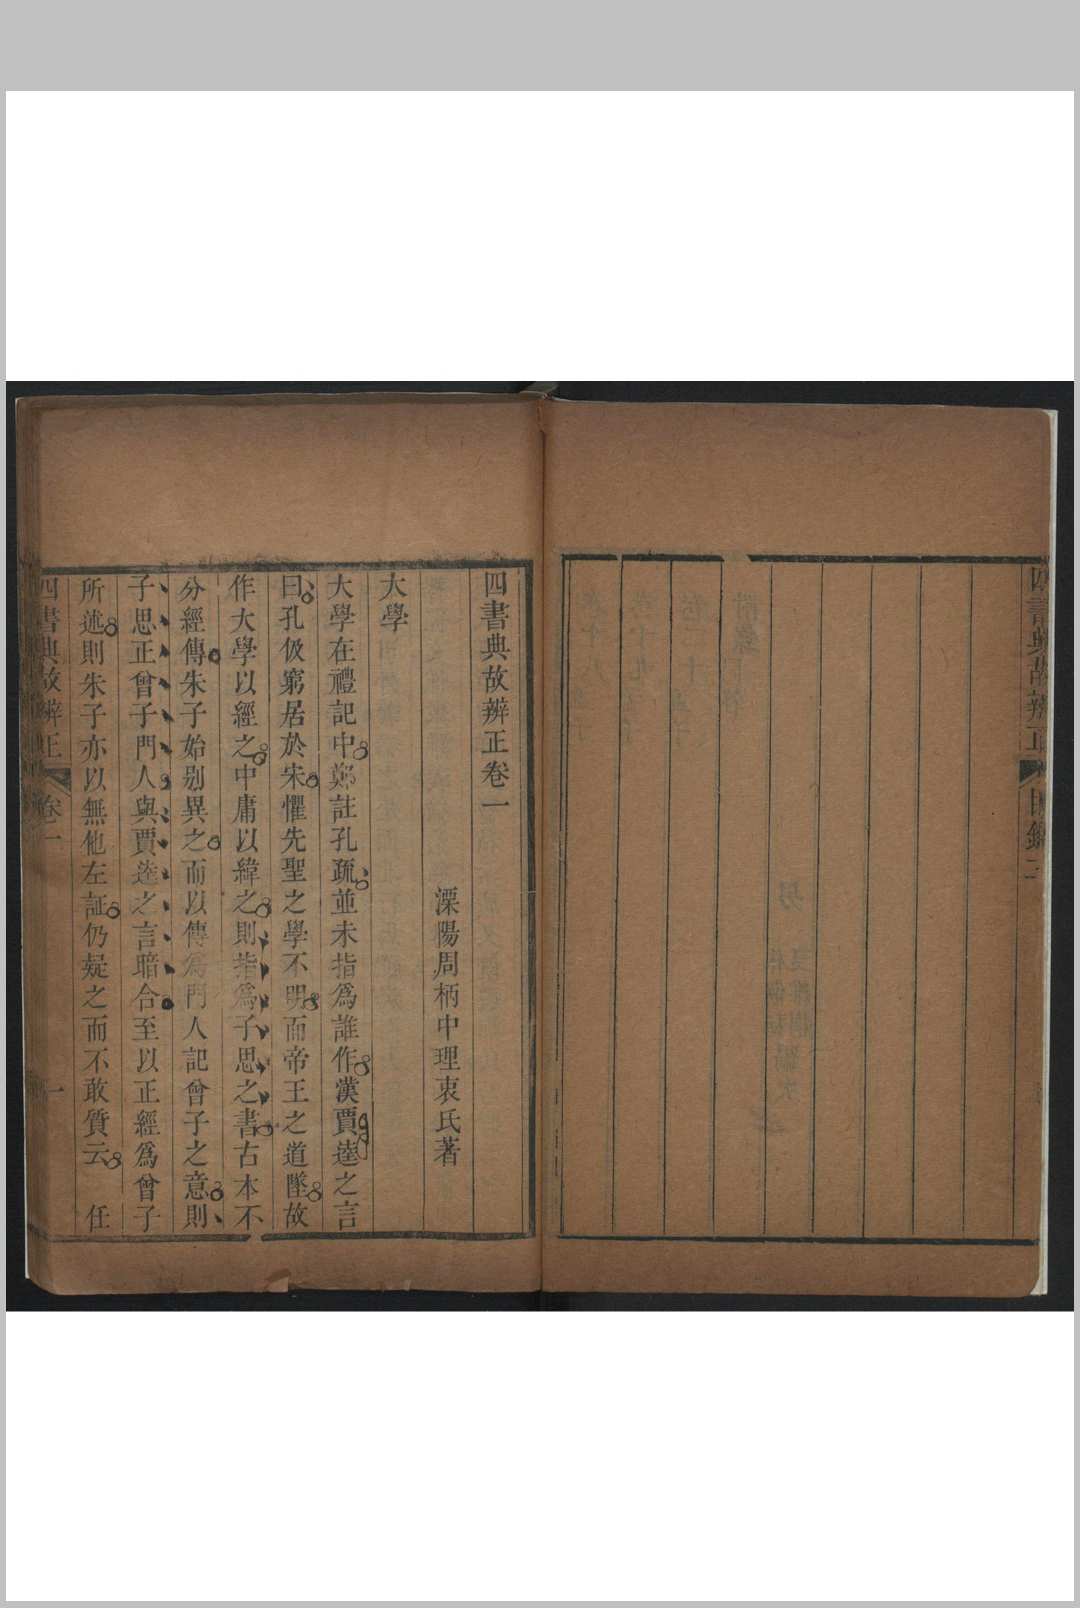 四書典故辨正
目錄二
四書典故辨正卷一
溧陽周柄中理衷氏著
大學
大學在禮記中鄭註孔疏並未指爲誰作漢賈逵之言
曰孔伋窮居於宋懼先聖之學不明而帝王之道墜故
作大學以經之中庸以緯之則指爲子思之書古本不
分經傳朱子始别異之而以傳爲門人記曾子之意則
子思正曾子門人與賈逵之言暗合至以正經爲曾子
所述則朱子亦以無他左証仍疑之而不敢質云　任
四書典故辨正　卷一　一